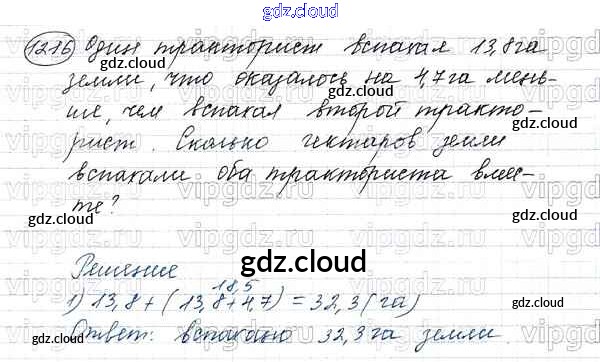 gdz.cloud
1216 Один тракторист вспахал 13,8га
земли, что оказалось на 4,7га мень-
ше, чем вспахал второй тракто-
рист. Сколько гектаров земли
вспахали оба тракториста вмес-
те?
gdz.cloud
gdz.cloud
gdz.cloud
gdz.cloud
gdz.cloud
Решение
gdz.cloud
18,5
1) 13,8 + (13,8+4,7) = 32,3 (га)
Ответ: вспахано 32,3 га земли.
gdz.cloud
gdz.cloud